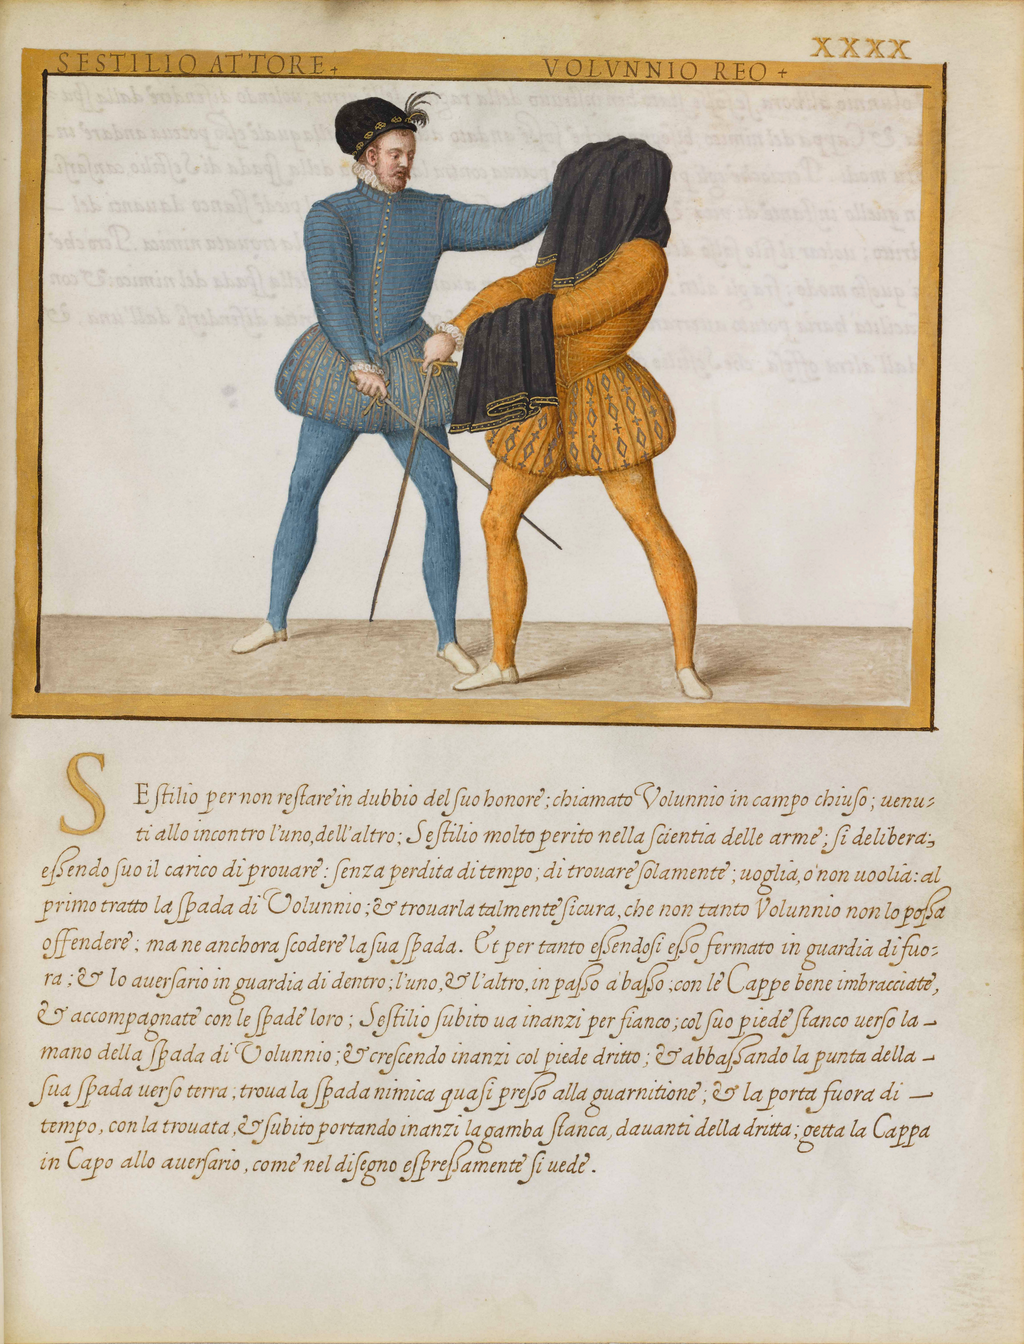 XXXX
SESTILIO ATTORE+
VOLVNNIO REO +
SEstilio per non restare in dubbio del suo honore; chiamato Volunnio in campo chiuso; uenu:
ti allo incontro l'uno, dell'altro; Sestilio molto perito nella scientia delle arme; si delibera;
essendo suo il carico di prouare: senza perdita di tempo; di trouare solamente; uoglia, o' non uoglia: al
primo tratto la spada di Volunnio; & trouarla talmente sicura, che non tanto Volunnio non lo possa
offendere; ma ne anchora scodere la sua spada. Et per tanto essendosi esso fermato in guardia di fuo:
ra; & lo auersario in guardia di dentro; l'uno, & l'altro, in passo a' basso; con le Cappe bene imbracciate,
& accompagnate con le spade loro; Sestilio subito ua inanzi per fianco; col suo piede stanco uerso la –
mano della spada di Volunnio; & crescendo inanzi col piede dritto; & abbassando la punta della –
sua spada uerso terra; troua la spada nimica quasi presso alla guarnitione; & la porta fuora di –
tempo, con la trouata, & subito portando inanzi la gamba stanca, dauanti della dritta; getta la Cappa
in Capo allo auersario, come nel disegno espressamente si uede.